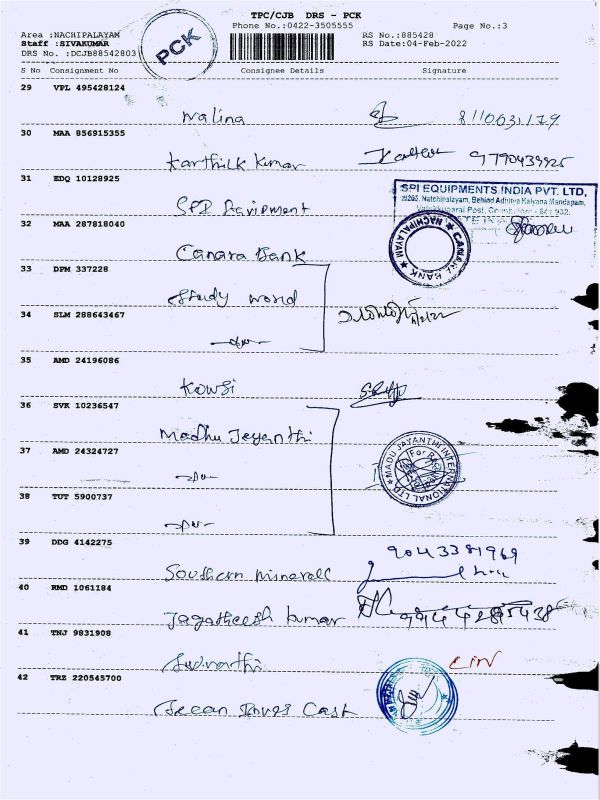 TPC/CJB DRS - PCK
Phone No.:0422-3505555 Page No.:3
Area :NACHIPALAYAM RS No.:885428
Staff :SIVAKUMAR RS Date:04-Feb-2022
DRS No. :DCJB88542803
PCK
S No Consignment No Consignee Details Signature
29 VPL 495428124
Nalina
30 MAA 856915355
Karthik Kumar
31 EDQ 10128925
SPI EQUIPMENTS INDIA PVT. LTD,
Natchipalayam, Behind Adhitya Kalyana Mandapam,
32 MAA 287818040
CANARA BANK ★ NACHIPALAYAM ★
Canara Bank
33 DPM 337228
Study world
34 SLM 288643467
35 AMD 24196086
Kowsi
36 SVK 10236547
Madhu Jayanthi
37 AMD 24324727
MADU JAYANTHI INTERNATIONAL LTD
38 TUT 5900737
39 DDG 4142275
9043381969
Southern minerals
40 RMD 1061184
Jagatheesh kumar
41 TNJ 9831908
42 TRZ 220545700
Cast